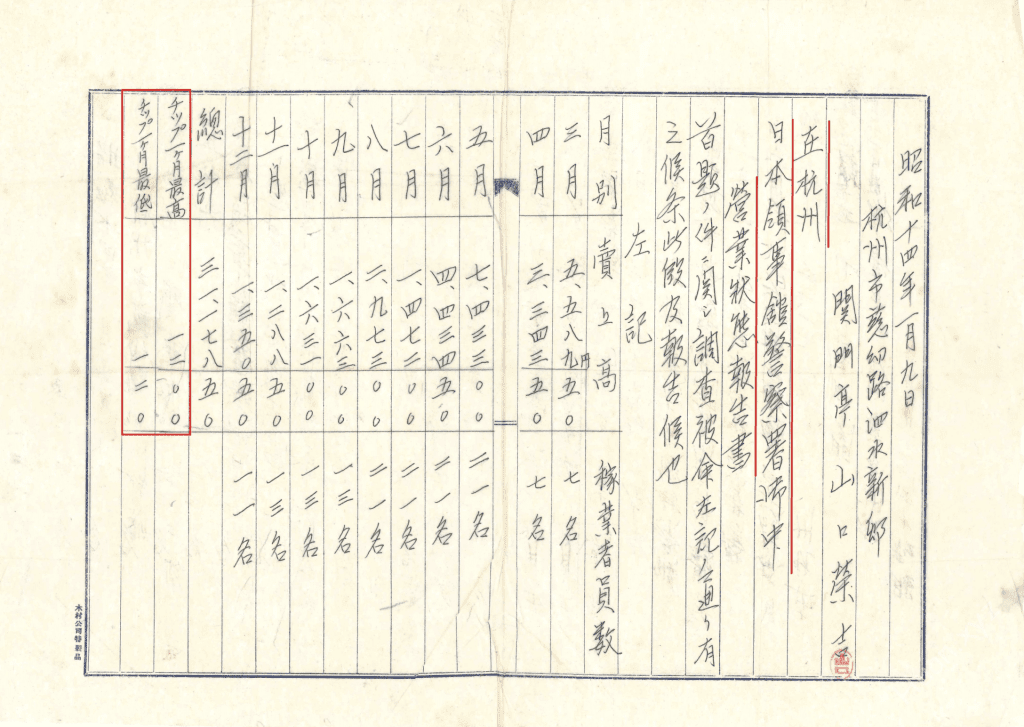 昭和十四年一月九日
杭州市慈幼路泗水新邨
開明亭 山口榮吉
在杭州
日本領事舘警察署御中
營業狀態報告書
首題ノ件ニ関シ調査被命左記ノ通リ有
之候条此段及報告候也
左記
月別 賣上高 稼業者員數
三月 五、五八九円五〇 七名
四月 三、三四三五〇 七名
五月 七、四三三〇〇 二一名
六月 四、四三四五〇 二一名
七月 一、四七二〇〇 二一名
八月 二、九七三〇〇 二一名
九月 一、六六三〇〇 一三名
十月 一、六三一〇〇 一三名
十一月 一、二八八五〇 一三名
十二月 一、三五〇五〇 一一名
總計 三一、一七八五〇
チップ一ヶ月最高 一二〇〇〇
チップ一ヶ月最低 一二〇
木村公司特製品